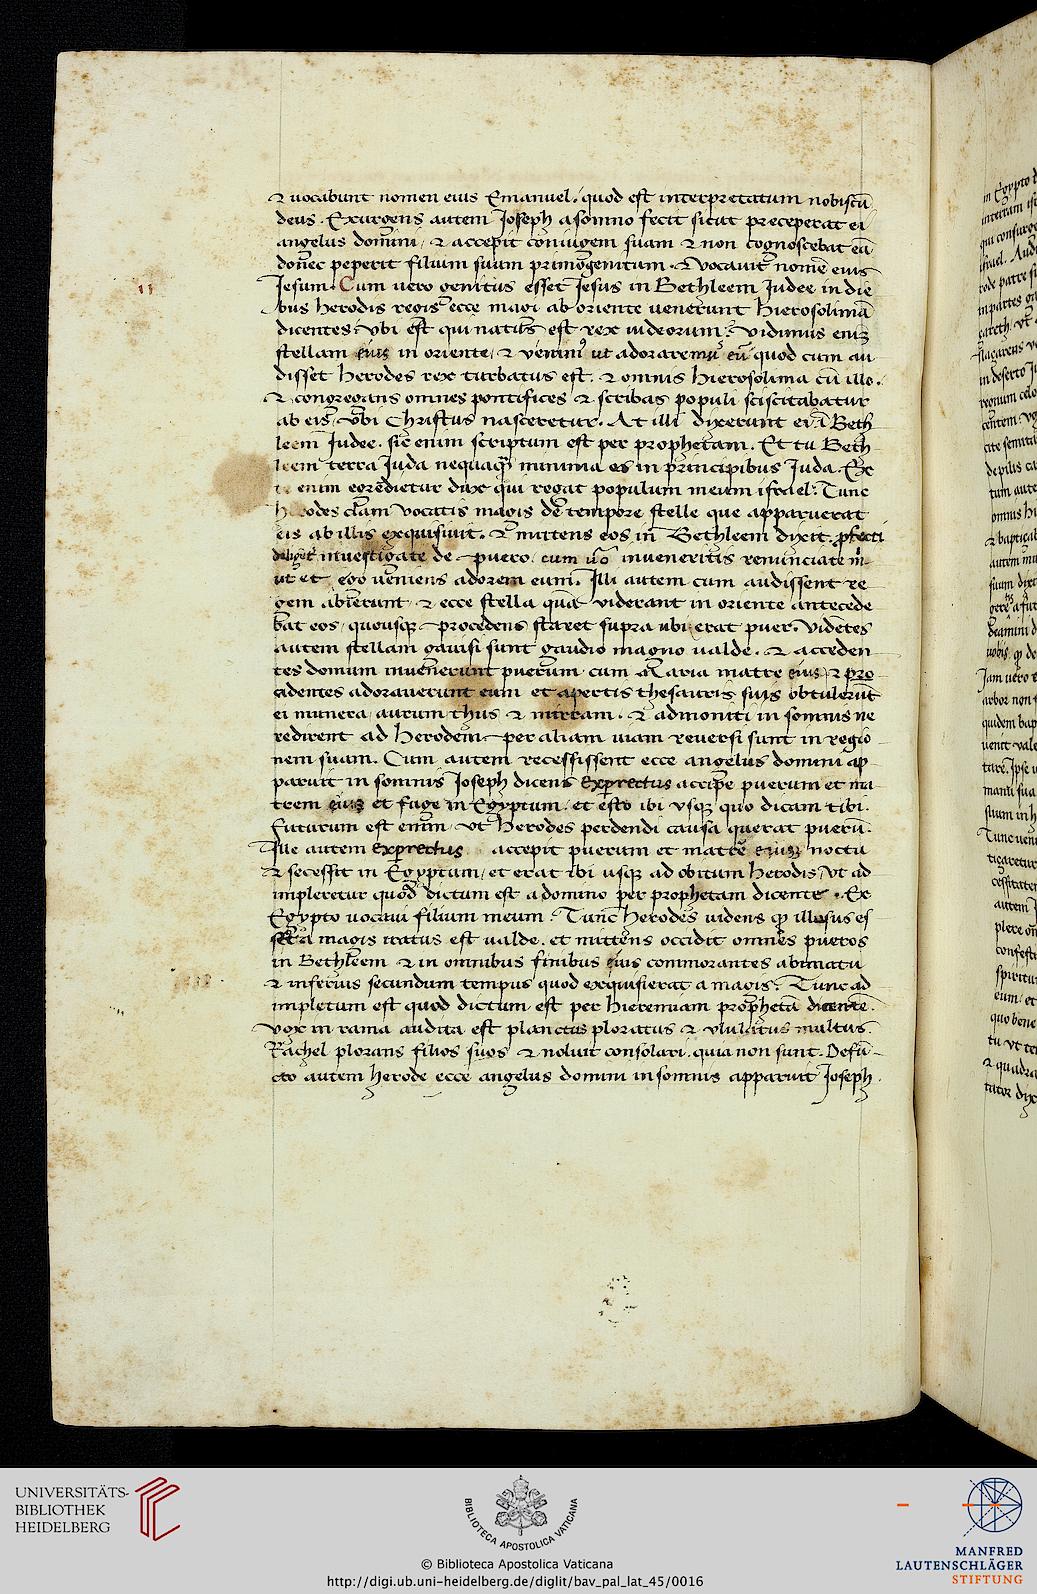 & vocabunt nomen eius Emanuel. quod est interpretatum nobiscū
deus. Exurgens autem Joseph a somno fecit sicut preceperat ei
angelus domini, & accepit coniugem suam & non cognoscebat eā
donec peperit filium suum primogenitum. & vocavit nomē eius
Jesum. Cum uero genitus esset Jesus in Bethleem Judee in die
bus herodis regis ecce magi ab oriente uenerunt hierosolimā
dicentes vbi est qui natus est rex iudeorum? vidimus eniȝ
stellam eius in oriente, & venimꝰ ut adoraremꝰ eū quod cum au
disset herodes rex turbatus est. & omnis hierosolima cū illo.
& congregans omnes pontifices & scribas populi sciscitabatur
ab eis, vbi Christus nasceretur. At illi dixerunt ei. ī Beth
leem Judee. sic enim scriptum est per prophetam. Et tu Beth
leem terra Juda nequaꝗ̄ minima es in principibus Juda. Ex
enim egredietur dux qui regat populum meum israel. Tunc
herodes clam vocatis magis de tempore stelle que apparuerat
eis ab illis exquisiuit. & mittens eos in Bethleem dixit. ꝓfecti
inuestigate de puero. cum ūo inueneritis renunciate m
ut et ego ueniens adorem eum. Illi autem cum audissent re
gem abierunt. & ecce stella quā viderant in oriente antecede
bat eos, quousqꝫ procedens staret supra ubi erat puer. Vidētes
autem stellam gauisi sunt gaudio magno ualde. & acceden
tes domum inuenerunt puerum cum Maria matre eius, & pro
cidentes adorauerunt eum et apertis thesauris suis obtulerūt
ei munera, aurum thus & mirram. & admoniti in somnis ne
redirent ad herodem per aliam uiam reuersi sunt in regio
nem suam. Cum autem recessissent ecce angelus domini ap
paruit in somnis Joseph dicens Experrectus accipe puerum et ma
trem eius et fuge in Egyptum. et esto ibi vsqꝫ quo dicam tibi.
futurum est enim, vt herodes perdendi causa querat puerū.
Ille autem experrectus accepit puerum et matrē eiusȝ noctu
& secessit in Egyptum, et erat ibi usqꝫ ad obitum herodis, vt ad
impleretur quod dictum est a domino per prophetam dicente. Ex
Egypto uocaui filium meum. Tunc herodes uidens ꝙ illusus es
set a magis iratus est ualde. et mittens occidit omnes pueros
in Bethleem & in omnibus finibus eius commorantes a bimatu
& inferius secundum tempus quod exquisierat a magis. Tunc ad
impletum est quod dictum est per hieremiam prophetā dicentē.
vox in rama audita est planctus ploratus & vlulatus multus.
Rachel plorans filios suos & noluit consolari. quia non sunt. Defū
cto autem herode ecce angelus domini in somnis apparuit Joseph.
II
UNIVERSITÄTS-
BIBLIOTHEK
HEIDELBERG
BIBLIOTECA APOSTOLICA VATICANA
© Biblioteca Apostolica Vaticana
http://digi.ub.uni-heidelberg.de/diglit/bav_pal_lat_45/0016
MANFRED
LAUTENSCHLÄGER
STIFTUNG